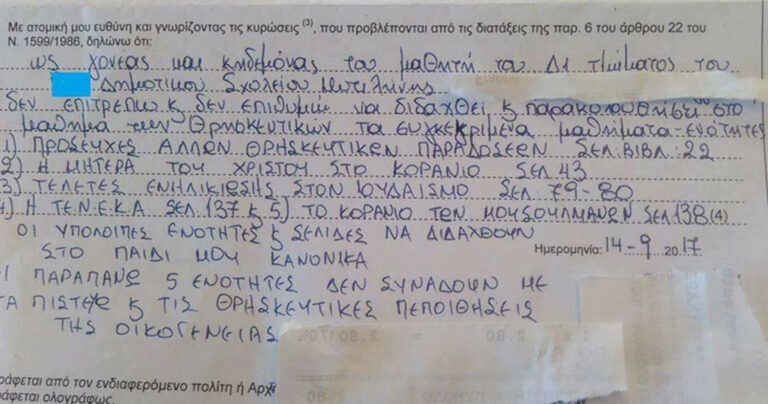 Με ατομική μου ευθύνη και γνωρίζοντας τις κυρώσεις (3), που προβλέπονται από τις διατάξεις της παρ. 6 του άρθρου 22 του
Ν. 1599/1986, δηλώνω ότι:
ως γονέας και κηδεμόνας του μαθητή του Δ1 τμήματος του
Δημοτικού Σχολείου Μυτιλήνης
δεν επιτρέπω κ δεν επιθυμώ να διδαχθεί ς παρακολουθήσει στο
μάθημα των Θρησκευτικών τα συγκεκριμένα μαθήματα - ενότητες
1) ΠΡΟΣΕΥΧΕΣ ΑΛΛΩΝ ΘΡΗΣΚΕΥΤΙΚΩΝ ΠΑΡΑΔΟΣΕΩΝ ΣΕΛ. ΒΙΒΛ: 22
2) Η ΜΗΤΕΡΑ ΤΟΥ ΧΡΙΣΤΟΥ ΣΤΟ ΚΟΡΑΝΙΟ ΣΕΛ 43
3) ΤΕΛΕΤΕΣ ΕΝΗΛΙΚΙΩΣΗΣ ΣΤΟΝ ΙΟΥΔΑΙΣΜΟ ΣΕΛ: 79-80
4) Η ΤΕ.Ν.Ε.ΚΑ ΣΕΛ 137 ς 5) ΤΟ ΚΟΡΑΝΙΟ ΤΩΝ ΜΟΥΣΟΥΛΜΑΝΩΝ ΣΕΛ 138 (4)
ΟΙ ΥΠΟΛΟΙΠΕΣ ΕΝΟΤΗΤΕΣ ς ΣΕΛΙΔΕΣ ΝΑ ΔΙΔΑΧΘΟΥΝ
ΣΤΟ ΠΑΙΔΙ ΜΟΥ ΚΑΝΟΝΙΚΑ
Ημερομηνία: 14-9 2017
Ι ΠΑΡΑΠΑΝΩ 5 ΕΝΟΤΗΤΕΣ ΔΕΝ ΣΥΝΑΔΟΥΝ ΜΕ
ΤΑ ΠΙΣΤΕΥΩ ς ΤΙΣ ΘΡΗΣΚΕΥΤΙΚΕΣ ΠΕΠΟΙΘΗΣΕΙΣ
ΤΗΣ ΟΙΚΟΓΕΝΕΙΑΣ
ράφεται από τον ενδιαφερόμενο πολίτη ή Αρχή
άφεται ολογράφως.